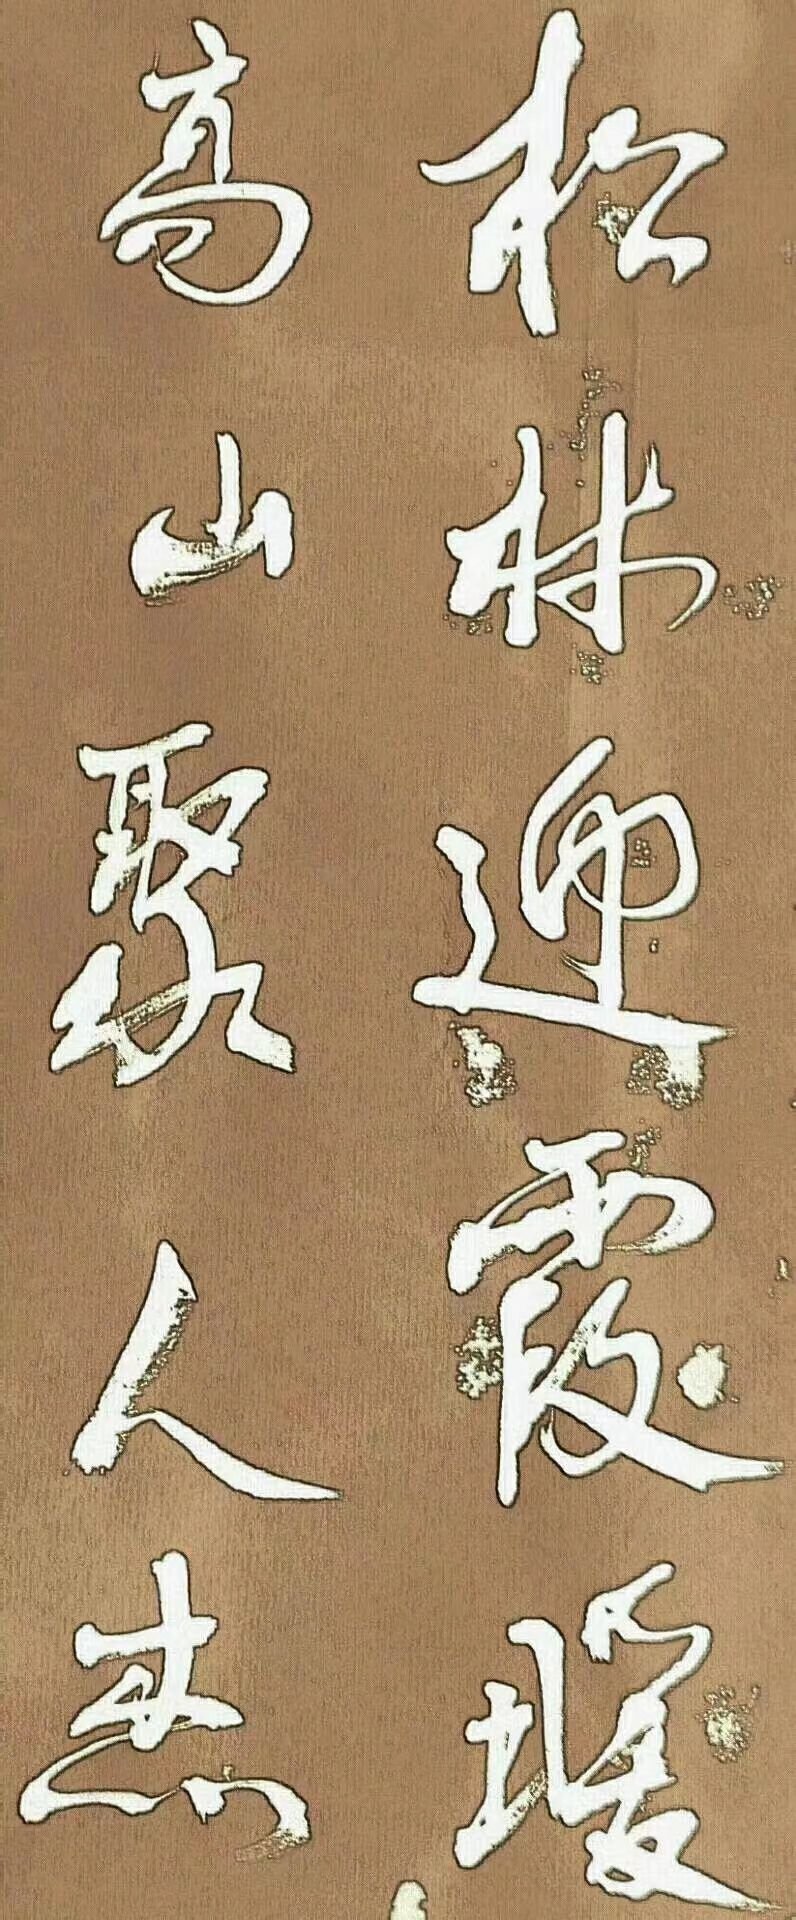 松林迎霞暖
高山聚人杰